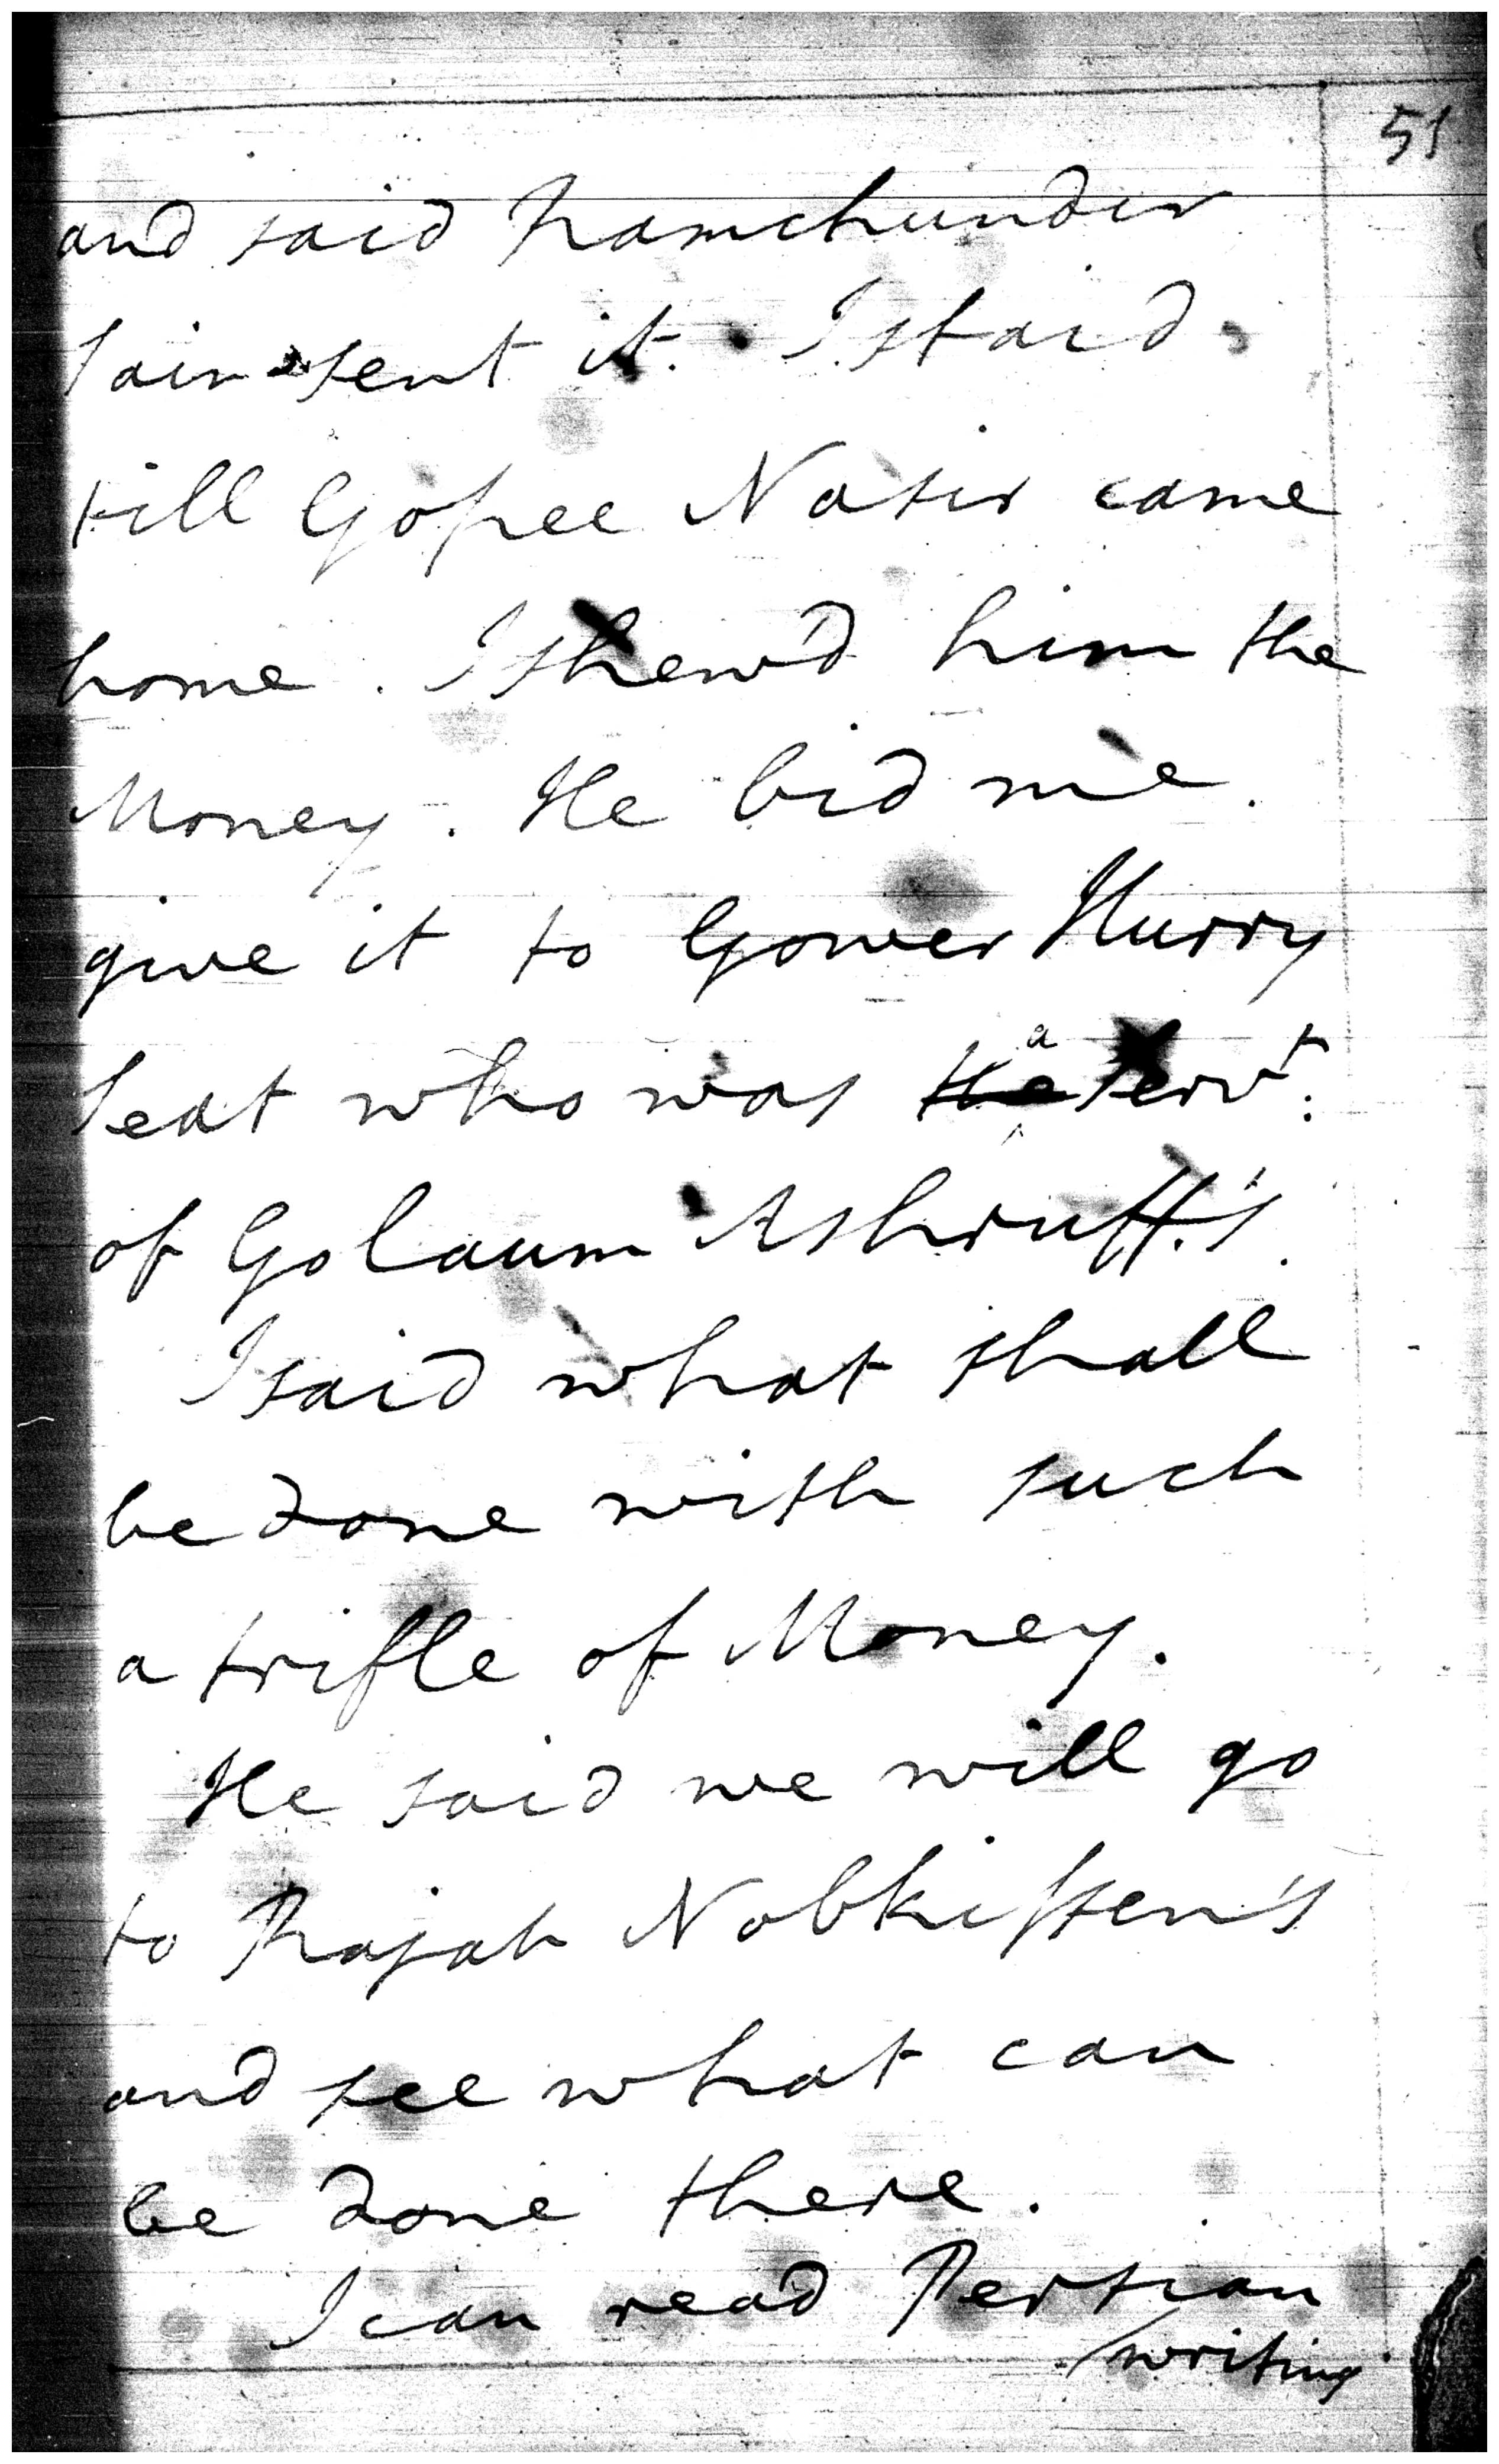 51
and said Ramchunder
Sain sent it. I staid
till Gopee Nasir came
home. I shew'd him the
Money. He bid me
give it to Gower Hurry
Seat who was the a servt.
of Golaum Ashruff's.
I said what shall
be done with such
a trifle of Money.
He said we will go
to Rajah Nobkissen's
and see what can
be done there.
I can read Persian
writing